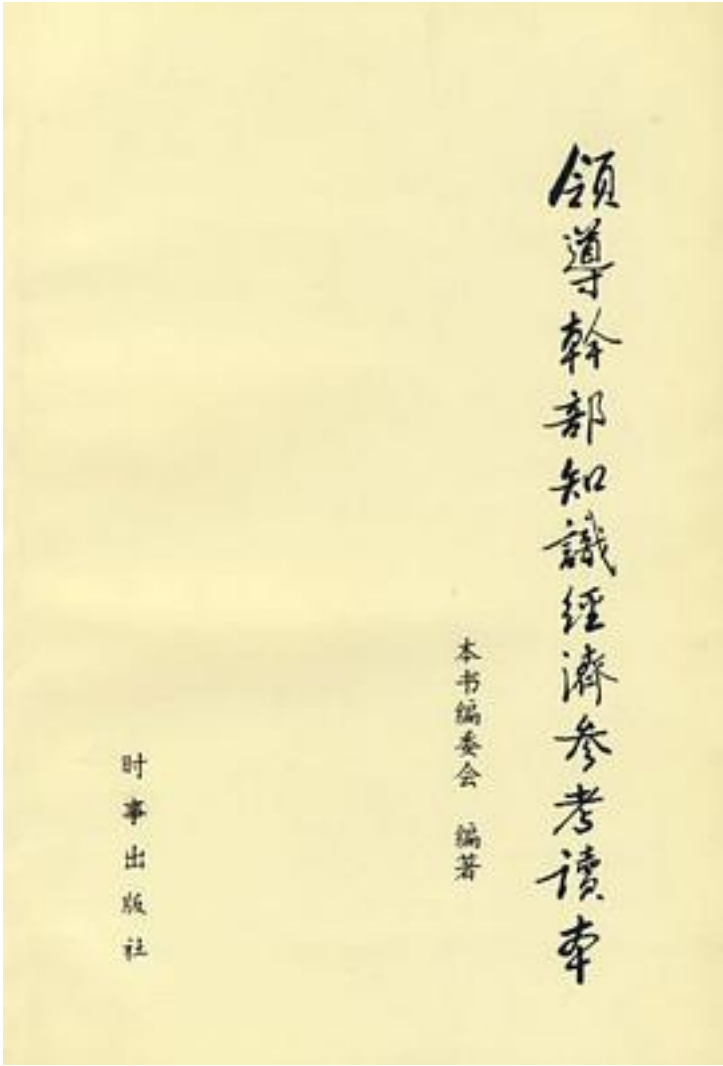 領導幹部知識經濟參考讀本
本书编委会 编著
时事出版社